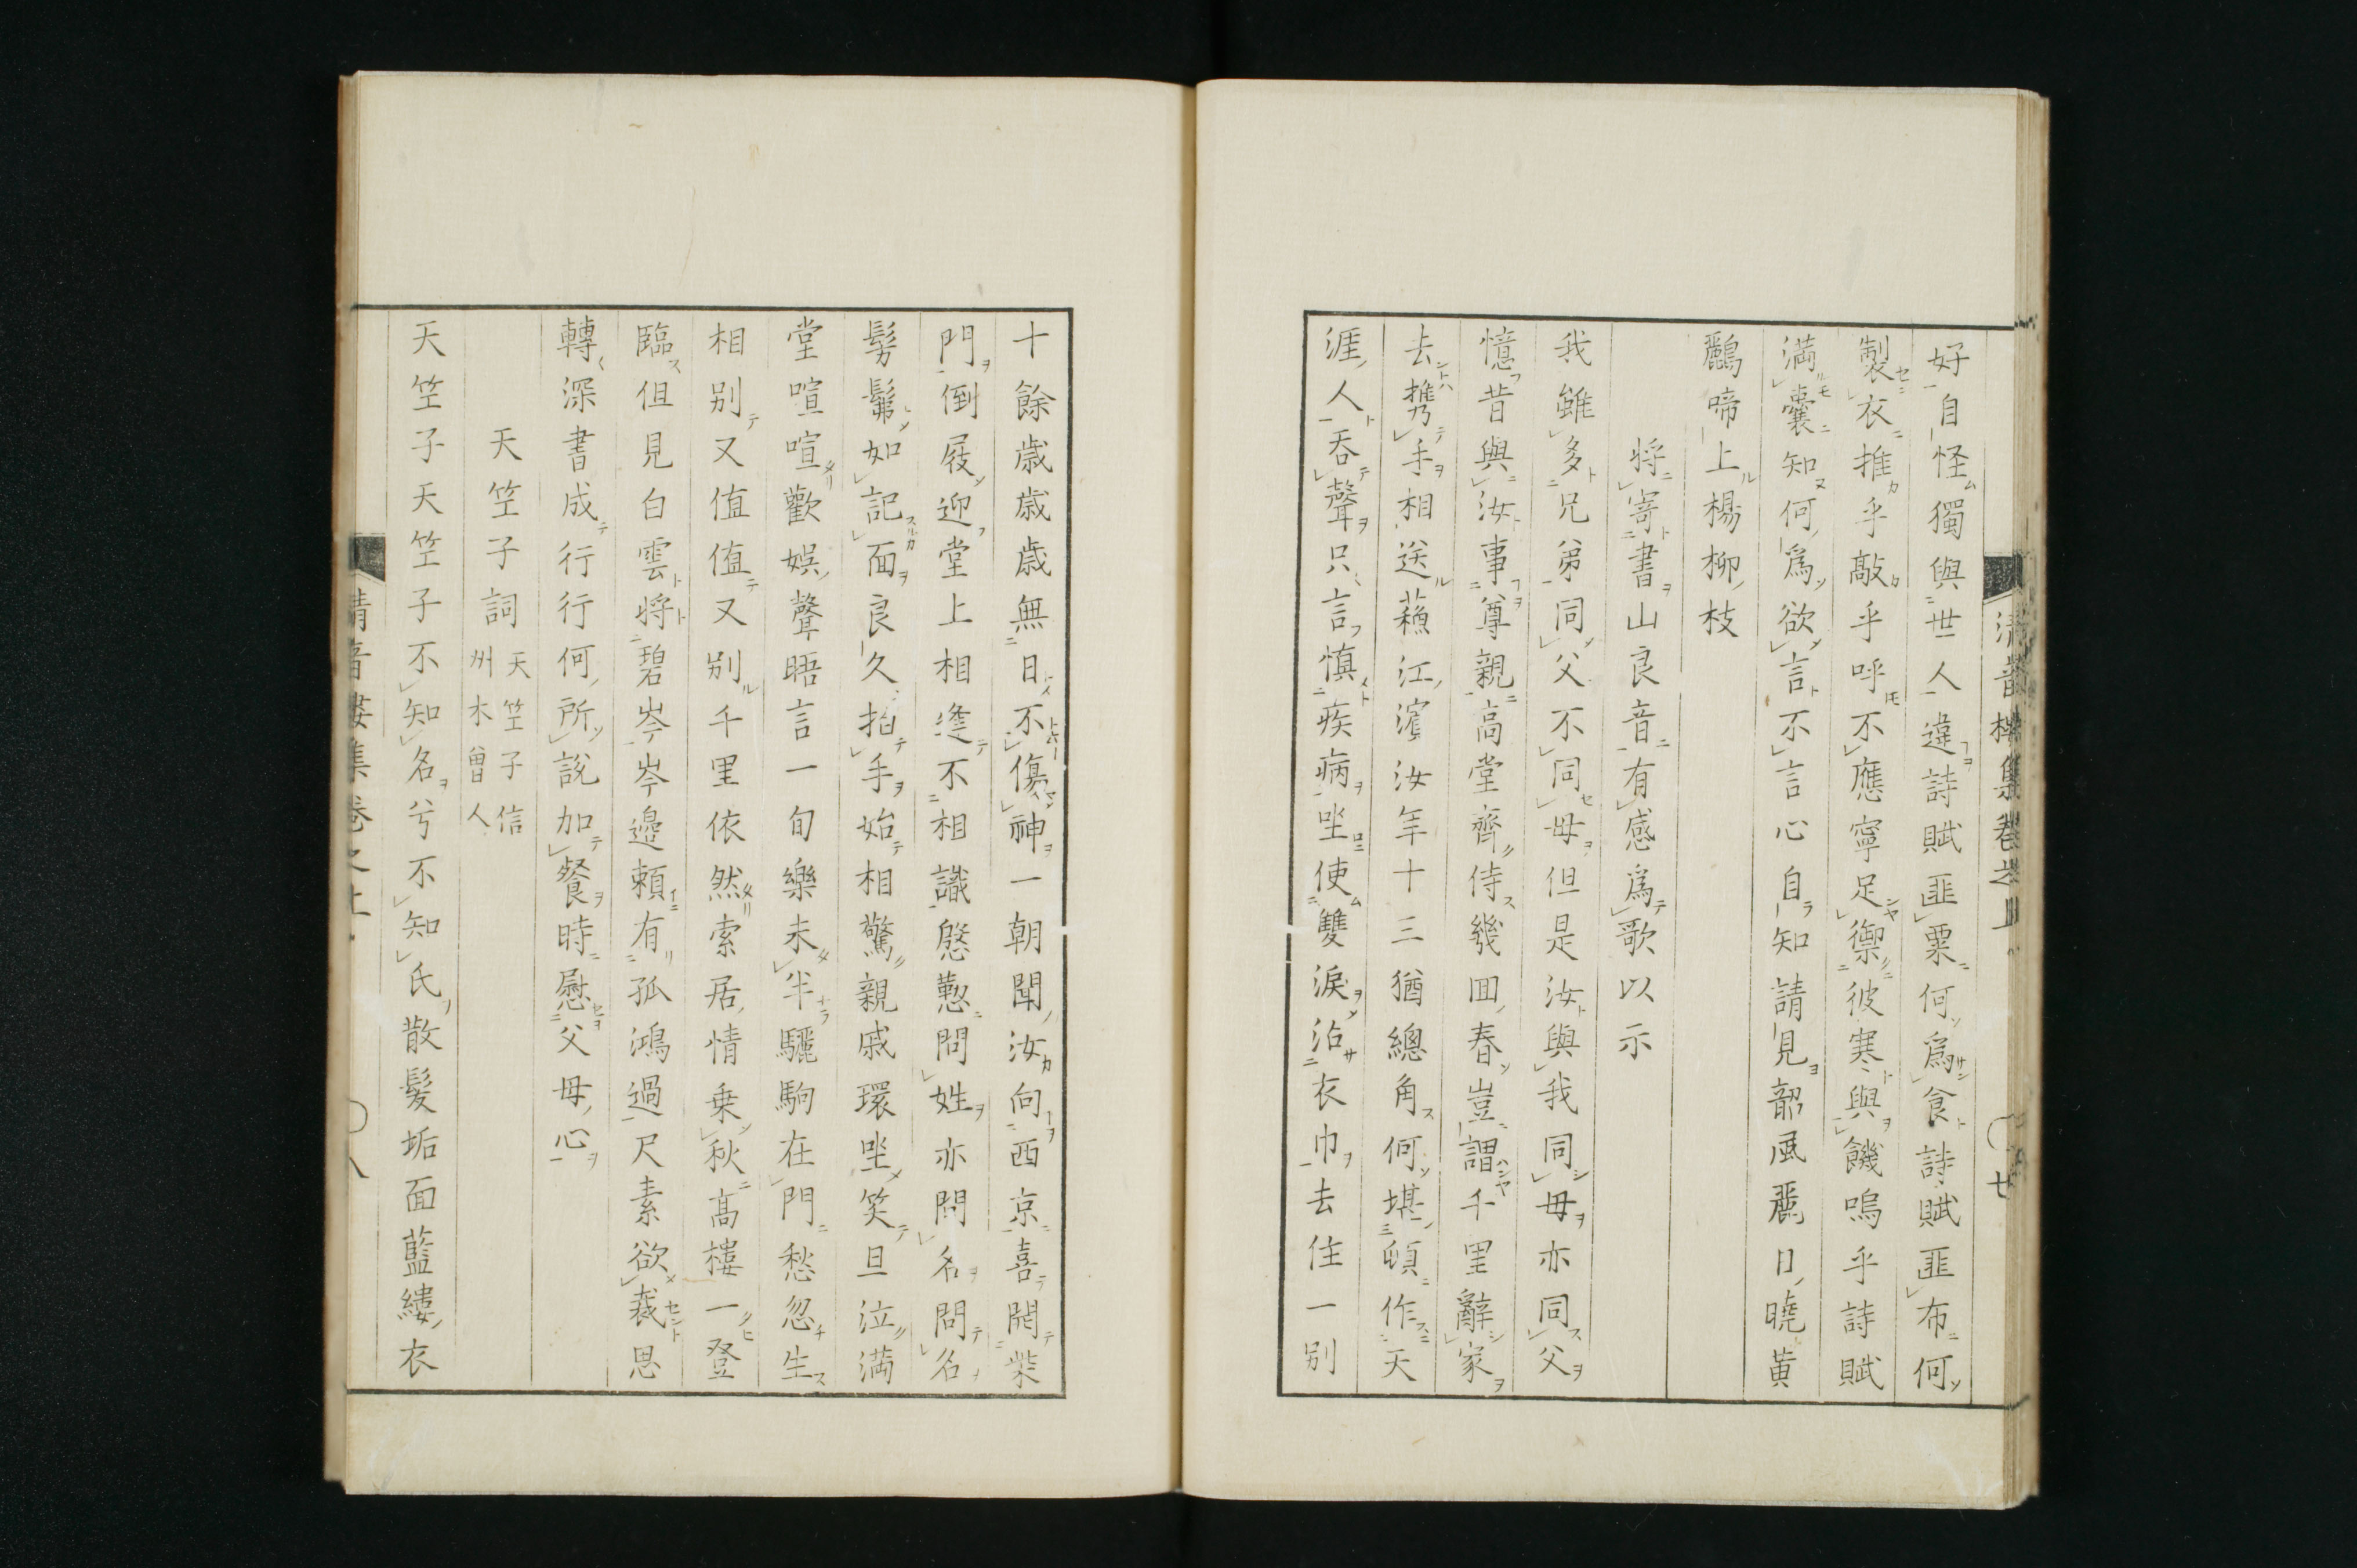 好自怪獨與世人違詩賦匪粟何爲食詩賦匪布何
製衣推乎敲乎呼不應寧足禦彼寒與饑嗚乎詩賦
満囊知何爲欲言不言心自知請見韶風麗日曉黄
鸝啼上楊柳枝
将寄書山良音有感爲歌以示
我雖多兄弟同父不同母但是汝與我同母亦同父
憶昔與汝事尊親高堂齊侍幾回春豈謂千里辭家
去携手相送蘓江濱汝年十三猶總角何堪頓作天
涯人吞聲只言慎疾病坐使雙淚沾衣巾去住一別
十餘歳歳歳無日不傷神一朝聞汝向西京喜開柴
門倒屐迎堂上相逢不相識慇懃問姓亦問名問名
髣髴如記面良久拍手始相驚親戚環坐笑旦泣満
堂喧喧歡娯聲晤言一旬樂未半驪駒在門愁忽生
相別又値値又別千里依然索居情乗秋高樓一登
臨但見白雲将碧岑岑邉頼有孤鴻過尺素欲裁思
轉深書成行行何所説加餐時慰父母心
天笠子詞 天笠子信州木曽人
天笠子天笠子不知名兮不知氏散髪垢面藍縷衣